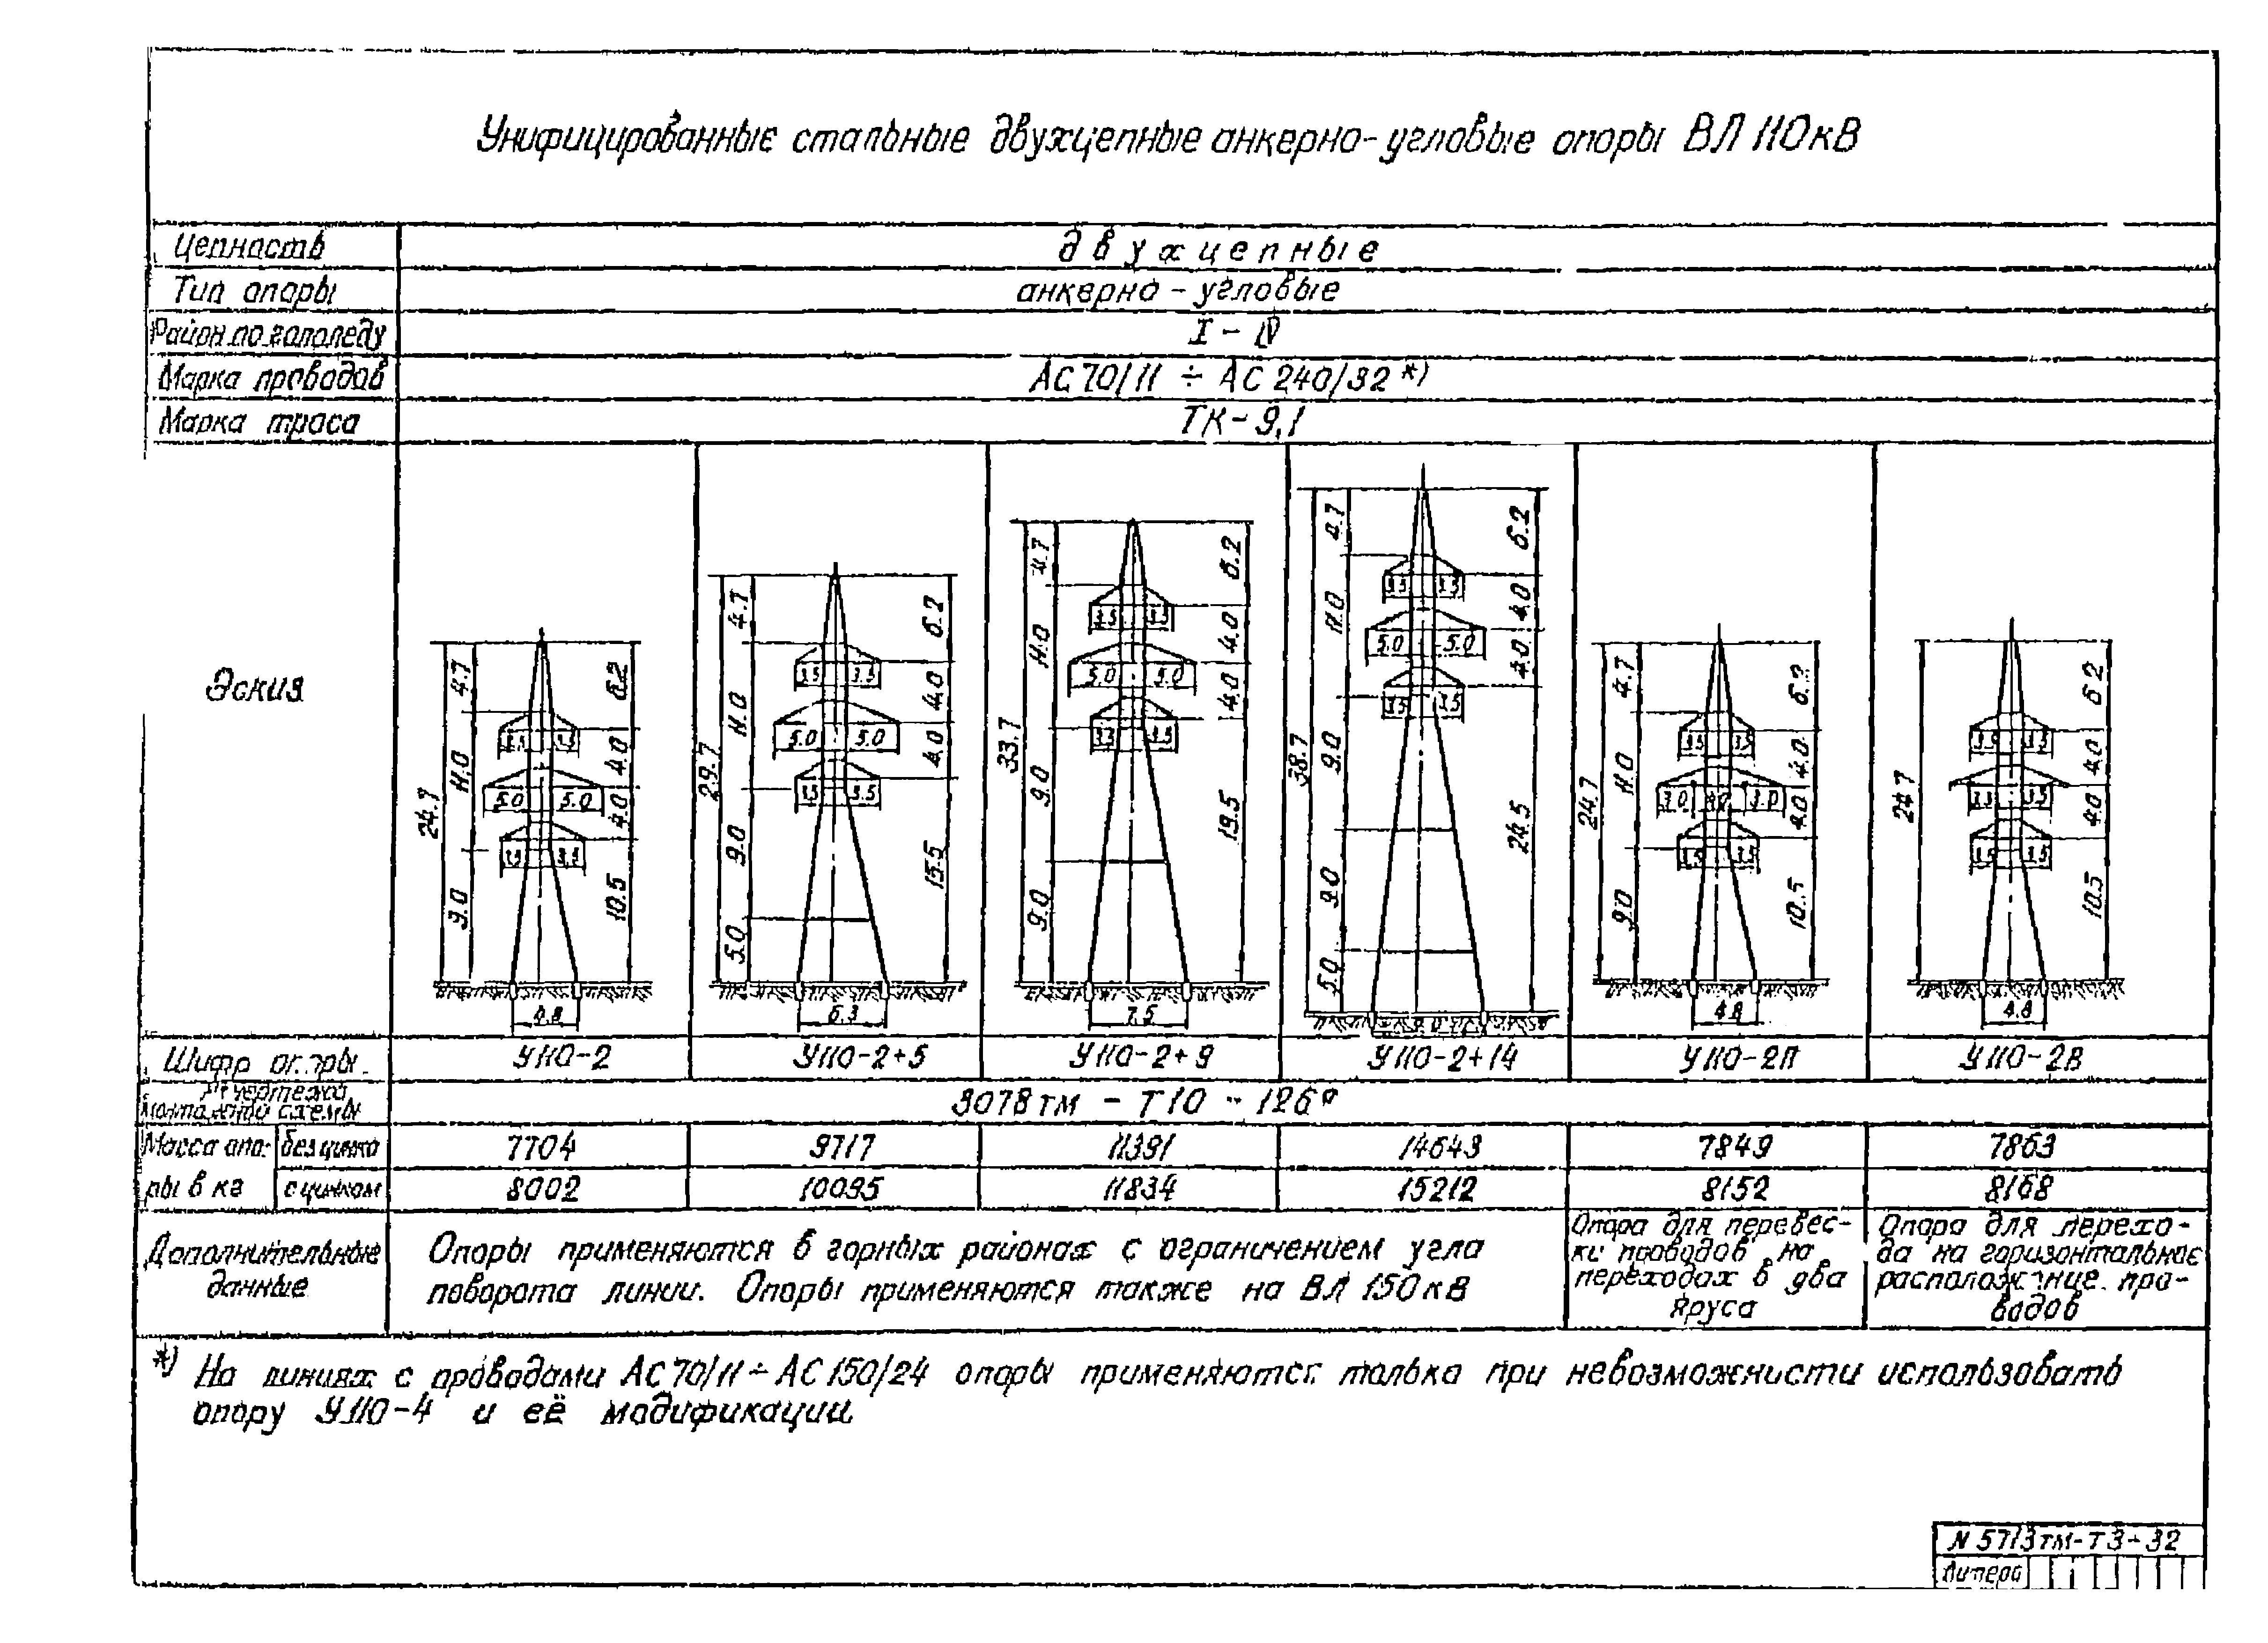 Унифицированные стальные двухцепные анкерно-угловые опоры ВЛ 110кВ
Цепность двухцепные
Тип опоры анкерно-угловые
Район по гололеду I-IV
Марка проводов АС70/11 ÷ АС 240/32 *)
Марка троса ТК-9,1
Эскиз
24.7 4.7 11.0 9.0 3.5 3.5 5.0 5.0 3.5 3.5 6.2 4.0 4.0 10.5 4.8
29.7 4.7 11.0 9.0 5.0 3.5 3.5 5.0 5.0 3.5 3.5 6.2 4.0 4.0 15.5 6.3
33.7 4.7 11.0 9.0 9.0 3.5 3.5 5.0 5.0 3.5 3.5 6.2 4.0 4.0 19.5 7.5
38.7 4.7 11.0 9.0 9.0 5.0 3.5 3.5 5.0 5.0 3.5 3.5 6.2 4.0 4.0 24.5
24.7 4.7 11.0 9.0 3.5 3.5 3.0 3.0 3.5 3.5 6.2 4.0 4.0 10.5 4.8
24.7 3.5 3.5 3.5 3.5 3.5 3.5 6.2 4.0 4.0 10.5 4.8
Шифр опоры У110-2 У110-2+5 У110-2+9 У110-2+14 У110-2П У110-2В
№ чертежа
монтажной схемы 3078тм - Т10 - 126
Масса опо- без цинка 7704 9717 11391 14643 7849 7863
ры в кг с цинком 8002 10095 11834 15212 8152 8168
Дополнительные
данные
Опоры применяются в горных районах с ограничением угла
поворота линии. Опоры применяются также на ВЛ 150кВ
Опора для перевес-
ки проводов на
переходах в два
яруса
Опора для перехо-
да на горизонтальное
расположение про-
водов
*) На линиях с проводами АС70/11 ÷ АС150/24 опоры применяются только при невозможности использовать
опору У110-4 и её модификации.
N 5713тм-Т3-32
Литера